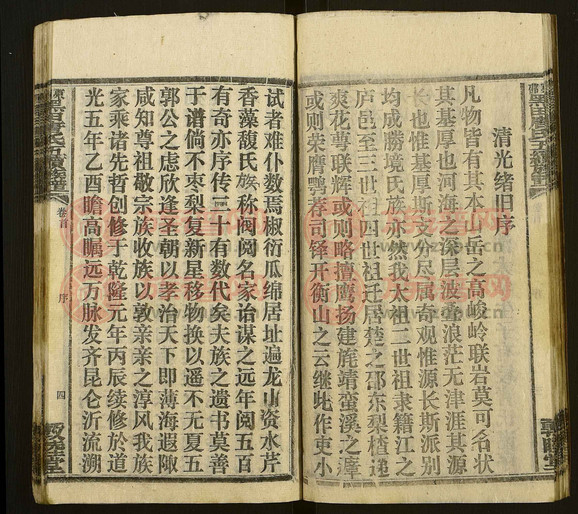 清光绪旧序
凡物皆有其本山岳之高峻岭联岩莫可名状
其基厚也河海之深层波叠浪茫无津涯其源
长也惟基厚斯支分尽属奇观惟源长斯派别
均成勝境氏族亦然我太祖二世祖隶籍江之
庐邑至三世祖四世祖迁居楚之邵东梨楂递
爽花萼联辉或则略擅鹰扬建旄靖蛮溪之瘴
或则荣膺鹗荐司铎开衡山之云继此作吏小
试者难仆数焉椒衍瓜绵居址遍龙山资水芹
香藻馥氏族称阀阅名家诒谋之远年阅五百
有奇亦序传二十有数代矣夫族之遗书莫善
于谱倘不枣梨复新星移物换以遥不无夏五
郭公之虑欣逢圣朝以孝治天下即薄海遐陬
咸知尊祖敬宗族收族以敦亲亲之淳风我族
家乘诸先哲创修于乾隆元年丙辰续修於道
光五年乙酉瞻高瞩远万脉发齐昆仑沂流溯
卷首
序
四